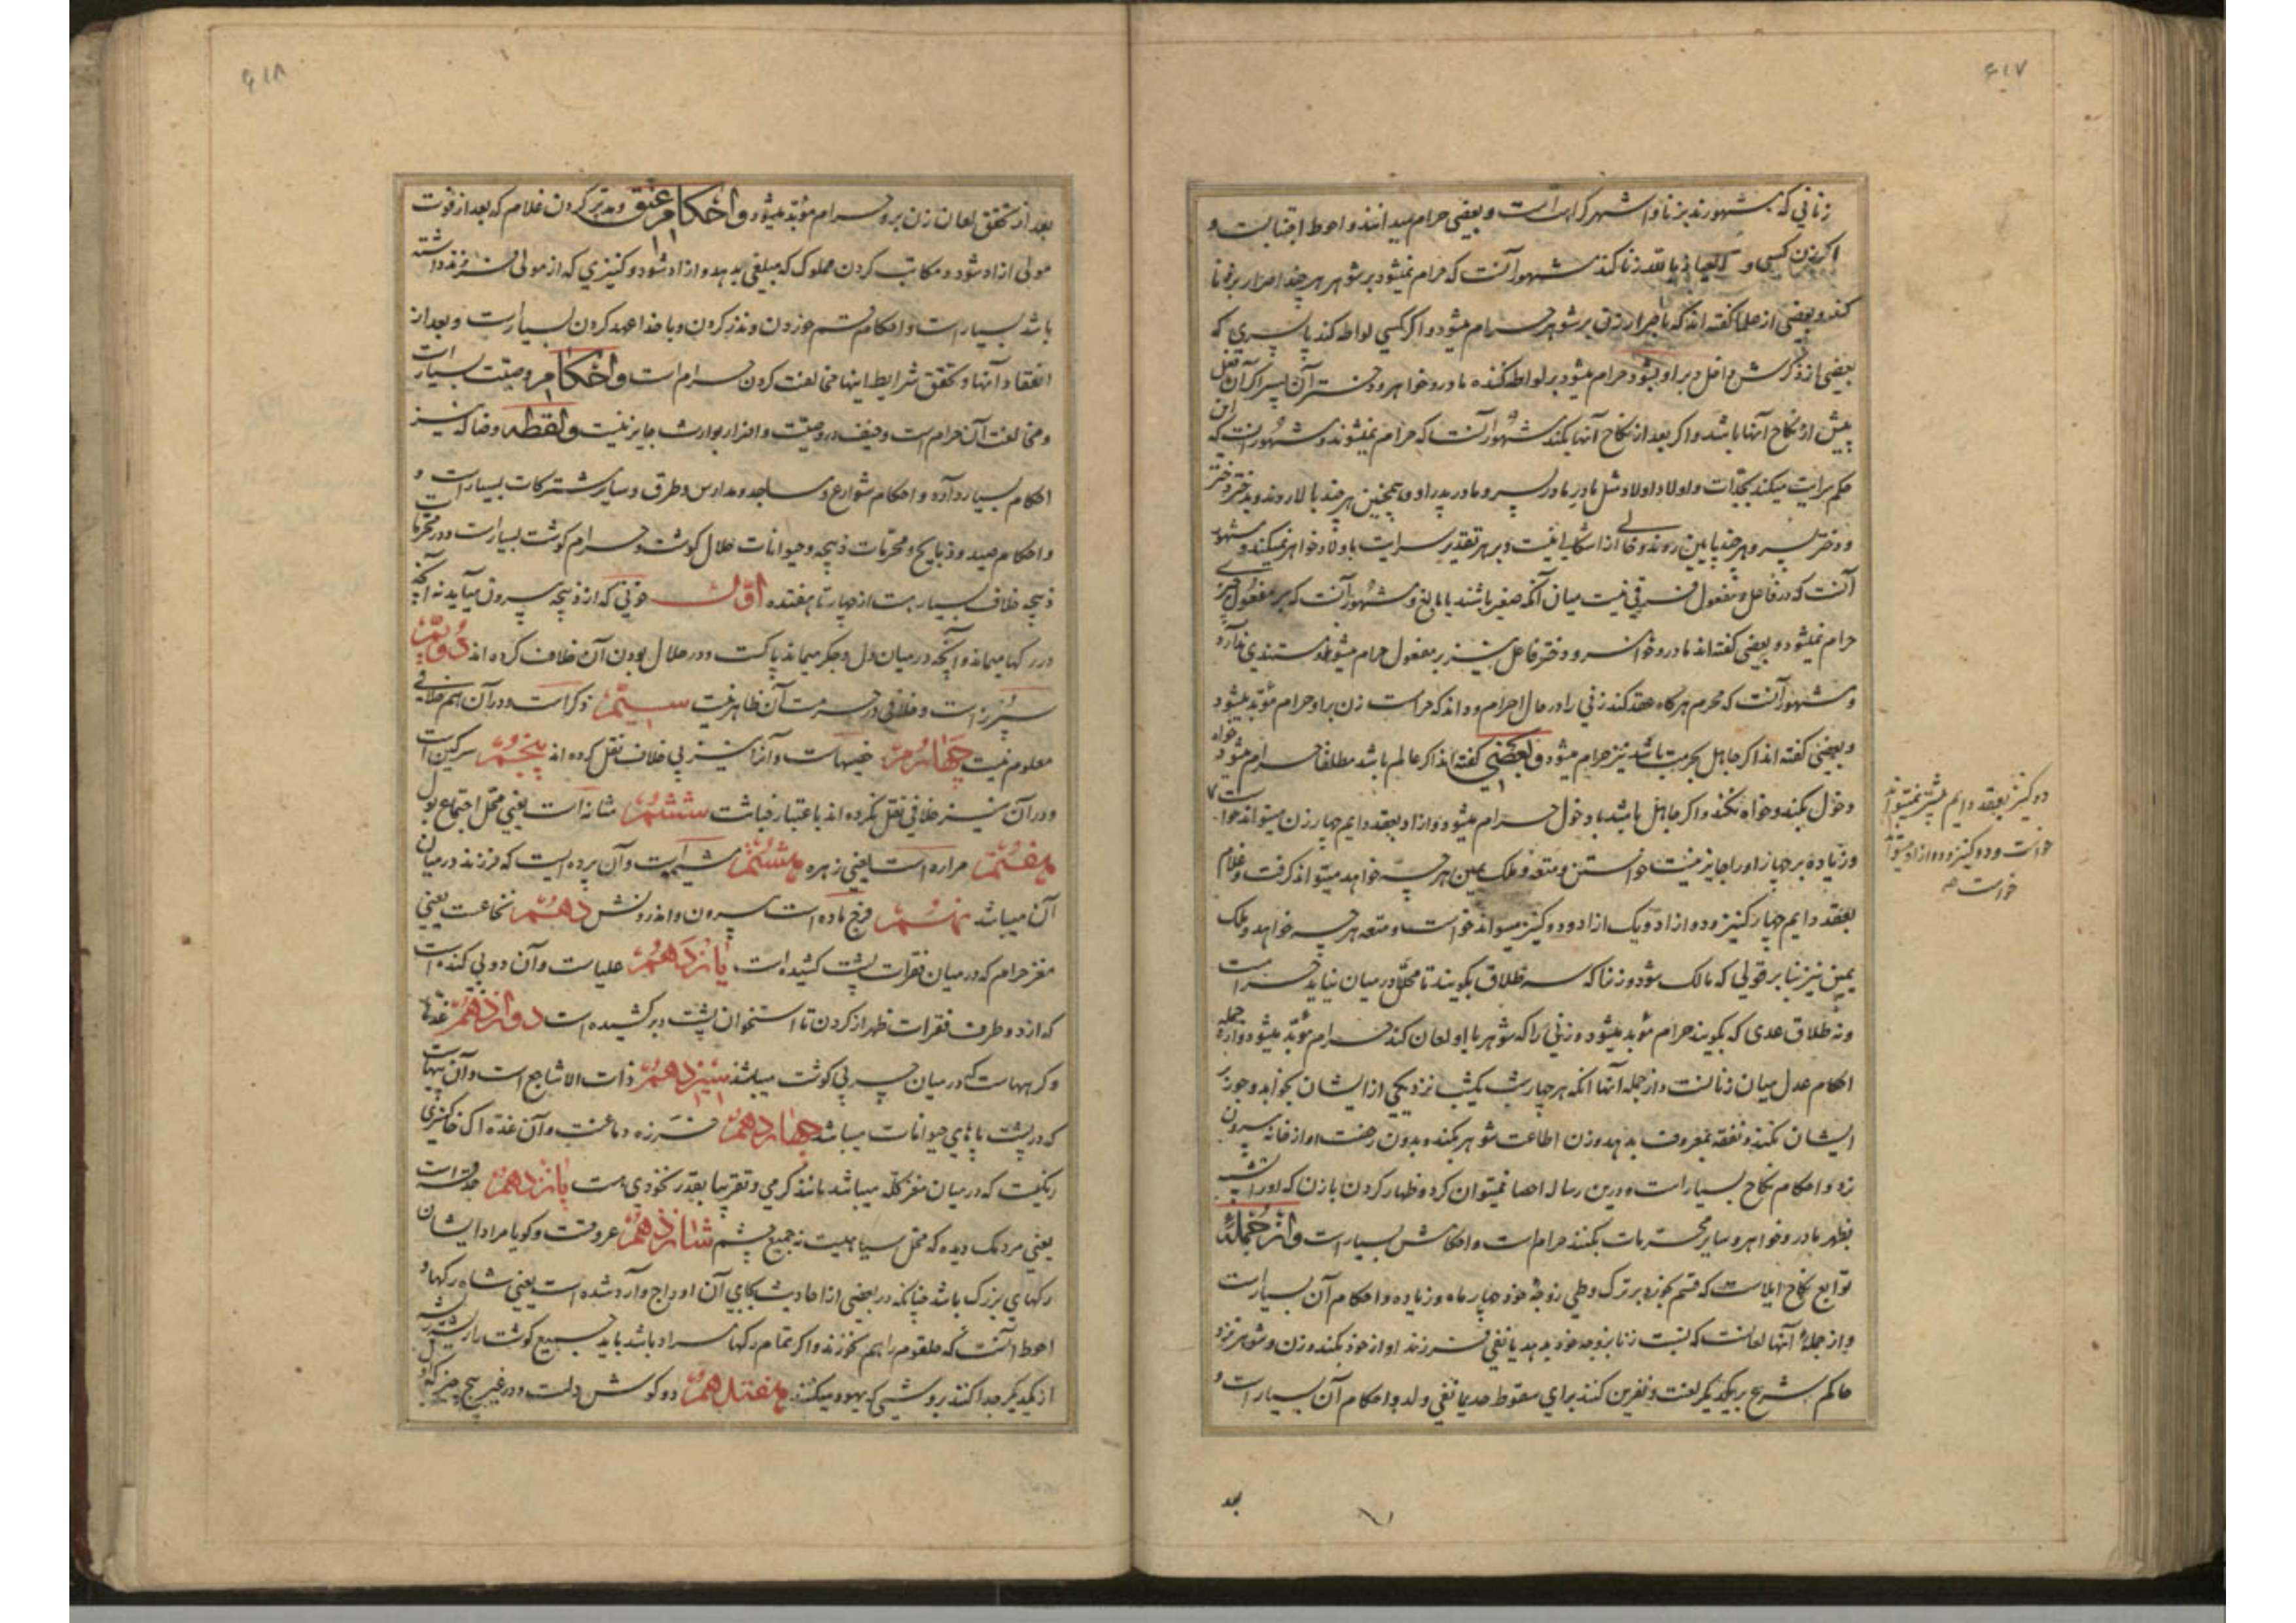 ۶۱۷
زنانی که مشهورند بزنا و اشهر کراهتست و بعضی حرام میدانند و احوط اجتنابست و
اکر زن کسی و العیاذ بالله زنا کند مشهور آنست که حرام نمیشود بر شوهر هر چند اصرار بر زنا
کند و بعضی از علما کفته اند که با اصرار زن بر شوهر حرام میشود و اکر کسی لواطه کند با پسری که
بعضی از ذکرش داخل دبر او بشود حرام میشود بر لواطه کننده مادر و خواهر و دختر آن پسر اکر آن فعل
پیش از نکاح آنها باشد و اکر بعد از نکاح آنها بکند مشهور آنست که حرام نمیشوند و مشهور انست که این
حکم سرایت میکند بجدات و اولاد اولاد مثل مادر مادر پسر و مادر پدر او و همچنین هر چند بالا روند و بدختر دختر
و دختر پسر و هر چند پایین روند و خالی از اشکالی نیست و بر هر تقدیر سرایت باولاد خواهر نمیکند و مشهور
آنست که در فاعل و مفعول فرقی نیست میان آنکه صغیر باشند یا بالغ و مشهور آنست که بر مفعول چیزی
حرام نمیشود و بعضی کفته اند مادر و خواهر و دختر فاعل نیز بر مفعول حرام میشود و مستندی ندارد
و مشهور آنست که محرم هرکاه عقد کند زنی را در حال احرام و داند که حرامست زن بر او حرام مؤبد میشود
و بعضی کفته اند اکر جاهل بحرمت باشد نیز حرام میشود و بعضی کفته اند اکر عالم باشد مطلقا حرام میشود خواه
دخول بکند و خواه نکند و اکر جاهل باشد با دخول حرام میشود و ازاد بعقد دایم چهار زن میتواند خواست
و زیاده بر چهار او را جایز نیست خواستن و متعه و ملک یمین هر چه خواهد میتواند کرفت و غلام
بعقد دایم چهار کنیز و دو ازاد و یک ازاد و دو کنیز میتواند خواست و متعه هر چه خواهد و ملک
یمین نیز بنا بر قولی که مالک شود و زنا که سه طلاق بکویند تا محلل در میان نیاید حرامست
و نه طلاق عدی که بکویند حرام مؤبد میشود و زنی را که شوهر با او لعان کند حرام مؤبد میشود و از جمله
احکام عدل میان زنانست و از جمله آنها انکه هر چهار شب یکشب نزد یکی از ایشان بخوابد و جور بر
ایشان نکند و نفقه بمعروف بدهد و زن اطاعت شوهر بکند و بدون رخصت او از خانه بیرون
نرود و احکام نکاح بسیار است و درین رساله احصا نمیتوان کرد و ظهار کردن با زن که او را تشبیه
بظهر مادر و خواهر و سایر محرمات بکنند حرام است و احکامش بسیار است و از جمله
توابع نکاح ایلاست که قسم بخورد بر ترک وطی زوجهٔ خود چهار ماه و زیاده و احکام آن بسیار است
و از جملهٔ آنها لعانست که نسبت زنا بزوجه خود بدهد یا نفی فرزند او از خود بکند و زن و شوهر نزد
حاکم شرع بر یکدیکر لعنت و نفرین کنند برای سقوط حد یا نفی ولد و احکام آن بسیار است و
دو کنیز بعقد دایم بیشتر نمیتواند
خواست و دو کنیز و دو ازاد میتواند
خواست
بعد
۶۱۸
بعد از تحقق لعان زن برو حرام مؤبد میشود و احکام عتق و مدبر کردن غلام که بعد از فوت
مولی ازاد شود و مکاتب کردن مملوک که مبلغی بدهد و ازاد شود و کنیزی که از مولی فرزند داشته
باشد بسیار است و احکام قسم خوردن و نذر کردن و با خدا عهد کردن بسیار است و بعد از
انعقاد آنها و تحقق شرایط اینها مخالفت کردن حرام است و احکام وصیت بسیار است
و مخالفت آن حرام است و حیف در وصیت و اضرار بوارث جایز نیست و لقطه و ضاله نیز
احکام بسیار دارد و احکام شوارع و مساجد و مدارس و طرق و سایر مشترکات بسیار است و
و احکام صید و ذبایح و محرمات ذبیحه و حیوانات حلال کوشت و حرام کوشت بسیار است و در محرمات
ذبیحه خلاف بسیار هست از چهار تا هفتده اول خونی که از ذبیحه بیرون میآید نه آنچه
در رکها میماند و آنچه در میان دل و جکر میماند پاکست و در حلال بودن آن خلاف کرده اند دویم
سپرز است و خلافی در حرمت آن ظاهر نیست سیم ذکر است و در آن هم خلافی
معلوم نیست چهارم خصیهاست و آنرا نیز بی خلاف نقل کرده اند پنجم سرکین است
و در آن نیز خلافی نقل نکرده اند باعتبار خباثت ششم مثانه است یعنی محل اجتماع بول
هفتم مراره است یعنی زهره هشتم مشیمه است و آن پرده ایست که فرزند در میان
آن میباشد نهم فرج ماده است بیرون و اندرونش دهم نخاعست یعنی
مغز حرام که در میان فقرات پشت کشیده است یازدهم علباست و آن دو پی کنده است
که از دو طرف فقرات ظهر از کردن تا استخوان پشت در کشیده است دوازدهم غدها
و کرههاست که در میان چربی کوشت میباشد سیزدهم ذات الاشاجع است و آن پیهاست
که در پشت پاهای حیوانات میباشد چهاردهم خرزه دماغست و آن غده ایست خاکستری
رنکست که در میان مغز کله میباشد مانند کرمی و تقریبا بقدر نخودی هست پانزدهم حدقه است
یعنی مردمک دیده که محل سیاهیست نه جمیع چشم شانزدهم عروقست و کویا مراد ایشان
رکهای بزرک باشد چنانکه در بعضی از احادیث بجای آن اوداج وارد شده است یعنی شاه رکها و
احوط آنست که حلقوم را هم نخورند و اکر تمام رکها مراد باشد باید جمیع کوشت را ریشه ریشه
از یکدیکر جدا کنند بروشی که یهود میکنند هفتدهم دو کوش دلست و در غیر پنج چیز که اول